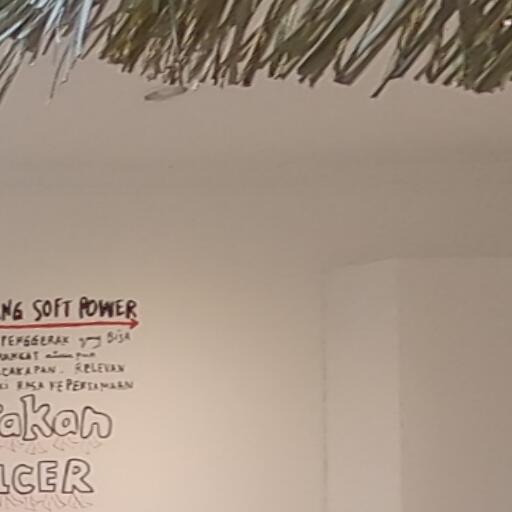 NG SOFT POWER
PENGGERAK yang BISA
CAKAPAN. RELEVAN
RASA KEPERTAMAAN
akan
CER